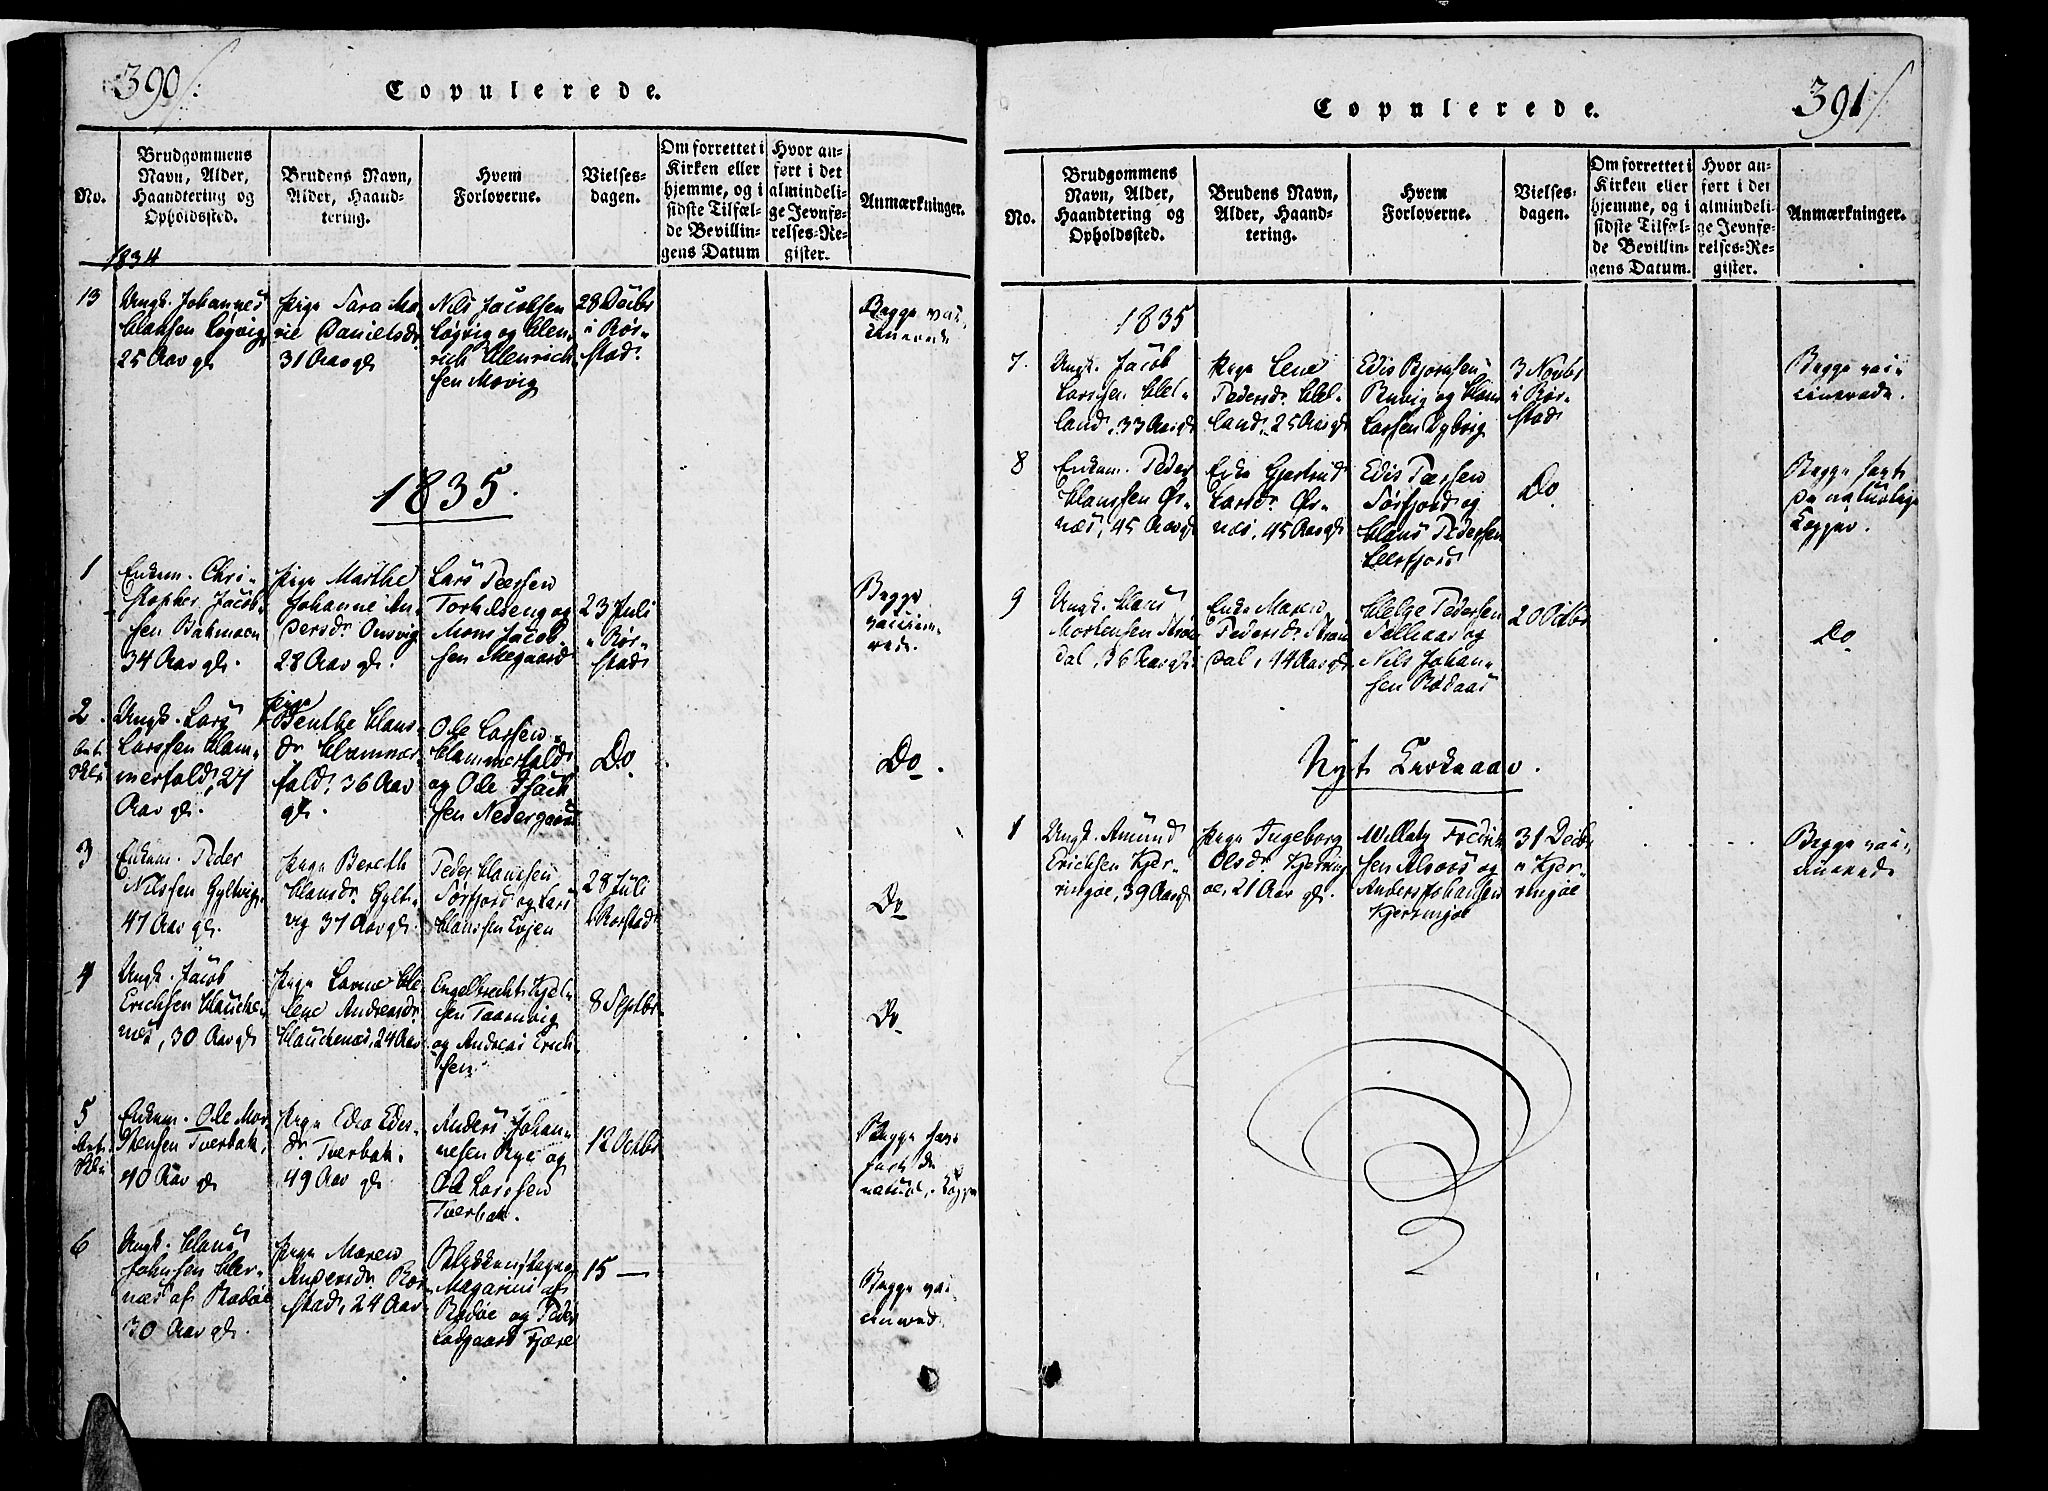 390/.
Copulerede.
No.
Brudgommens
Navn, Alder,
Haandtering og
Opholdssted.
Brudens Navn,
Alder, Haand-
tering.
Hvem
Forloverne.
Vielses-
dagen.
Om forrettet i
Kirken eller
hjemme, og i
sidste Tilfæl-
de Bevillin-
gens Datum
Hvor an-
ført i det
almindeli-
ge Jevnfø-
relses-Re-
gister.
Anmærkninger.
1834
13
Ungk. Johannes
Hansen Løgvig
25 Aar gl
Pige Sara Ma-
rie Danielsdr
31 Aar gl
Nils Jacobsen
Løgvig og Hen-
rich Henrich-
sen Movig
28 Decbr
i Rør-
stad.
Begge vac-
cinerede
1835.
1
Enkem. Chri-
stopher Jacob-
sen Bakmoen
34 Aar gl.
Pige Marthe
Johanne An-
dersdr Onsvig
28 Aar gl.
Lars Peersen
Torkilseng og
Mons Jacob-
sen Megaard
23 Juli
i Rør-
stad
Begge
vaccine-
rede.
2.
Ungk. Lars
Larssen Ham-
merfald, 27
Aar gl.
Pige
Benthe Hans-
dr Hammer-
fald. 36 Aar
gl.
Ole Larsen
Hammerfald
og Ole Isach-
sen Nedergaard
Do
Do.
3
Enkem. Peder
Nilssen Gyltvig,
47 Aar gl.
Pige Bereth
Hansdr. Gylt-
vig 37 Aar gl.
Peder Hanssen
Sørfjord og Lars
Hanssen Evjen
28 Juli
i Rørstad
Do
4
Ungk. Jacob
Erichsen Hauke-
næs, 30 Aar gl
Pige Lorne He-
lene Andreasdr
Haukenæs, 24 Aar
Engelbrecht Kjel-
sen Taarnvig
og Andreas Erich-
sen
8 Septbr
Do
5
Enkem. Ole Mor-
tensen Tverbak,
40 Aar gl
Pige Edis Edis-
dr Tverbak.
49 Aar gl.
Anders Johan-
nesen Rye og
Ole Larssen
Tverbak.
12 Octbr
Begge hav
havt de
naturl. Kopper
6
Ungk. Hans
Johnsen Her-
næs af Rødøe
30 Aar gl.
Pige Maren
Andersdr Rør-
stad, 24 Aar
Magarius af
Rødøe og Peder
Ladgaard Fjære
15 —
Begge vac-
cinered
391/.
Copulerede.
No.
Brudgommens
Navn, Alder,
Haandtering og
Opholdssted.
Brudens Navn,
Alder, Haand-
tering.
Hvem
Forloverne.
Vielses-
dagen.
Om forrettet i
Kirken eller
hjemme, og i
sidste Tilfæl-
de Bevillin-
gens Datum.
Hvor an-
ført i det
almindeli-
ge Jevnfø-
relses-Re-
gister.
Anmærkninger.
1835
7.
Ungk. Jacob
Larssen Hel-
land, 33 Aar gl
Pige Lene
Pedersdr. Hel-
land, 25 Aar gl
Edis Bjørnsen
Buvig og Hans
Larsen Dybvig
3 Novbr
i Rør-
stad
Begge vac-
cinerede.
8
Enkem. Peder
Hanssen Ør-
næs, 45 Aar gl
Enke Gjertrud
Larsdr. Ør-
næs, 45 Aar gl
Edis Peersen
Sørfjord og
Hans Pedersen
Leerfjord
Do
Begge havt
de naturlige
Kopper.
9
Ungk. Hans
Mortensen Strøm-
dal, 36 Aar gl
Enke Maren
Pedersdr. Strøm-
dal, 44 Aar gl
Helge Pedersen
Selleaas og
Nils Johan-
sen Rødaas
20 Octbr
Do
Nyt Kirkeaar.
1
Ungk. Amund
Erichsen Kjer-
ringøe, 39 Aar gl
Pige Ingeborg
Olsdr. Kjerring-
øe, 21 Aar gl.
Willatz Fredrik-
sen Alsoes og
Anders Johansen
Kjerringøe
31 Decbr
i Kjer-
ringøe
Begge vac-
cinerede